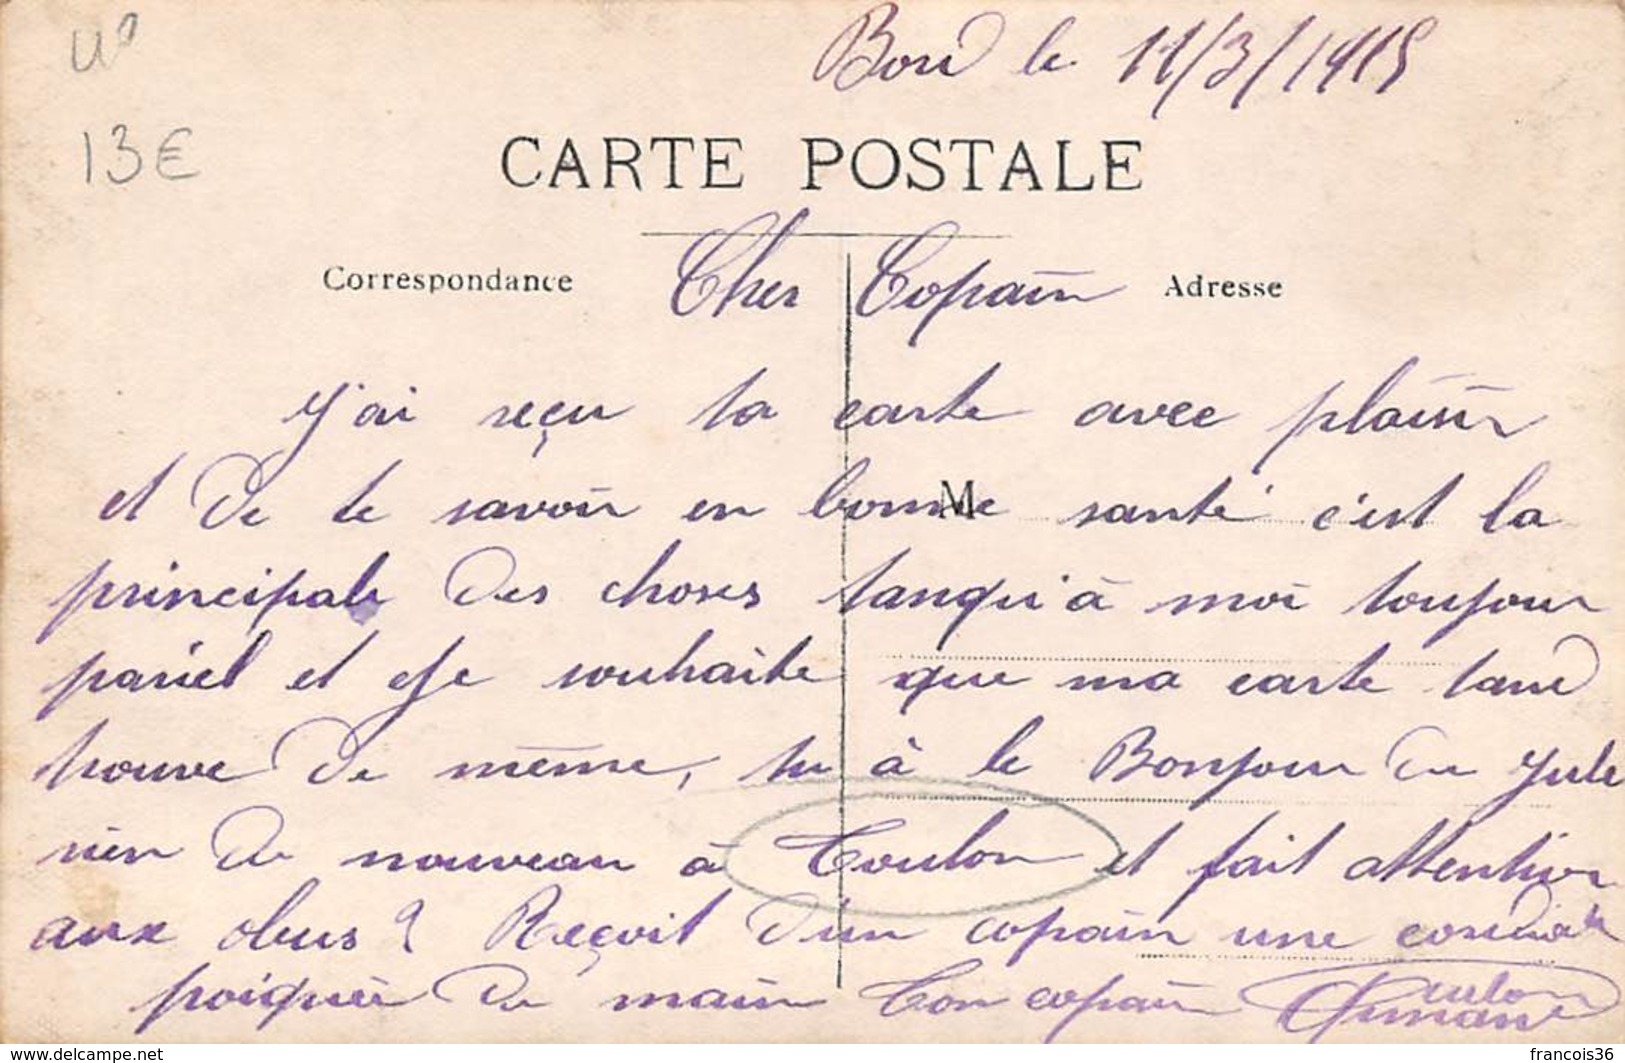 le 11/3/1915
13€
CARTE POSTALE
Correspondance
Adresse
Cher Copain
J'ai reçu ta carte avec plaisir
et de te savoir en bonne santé c'est la
M
principale des choses tanqu'à moi toujour
pariel et je souhaite que ma carte tand
trouve de même, tu à le Bonjour du Jule
rien de nouveau à Toulon et fait attention
aux obus ? Reçoit d'un copain une cordiale
poignée de main Ton copain
www.delcampe.net
francois36